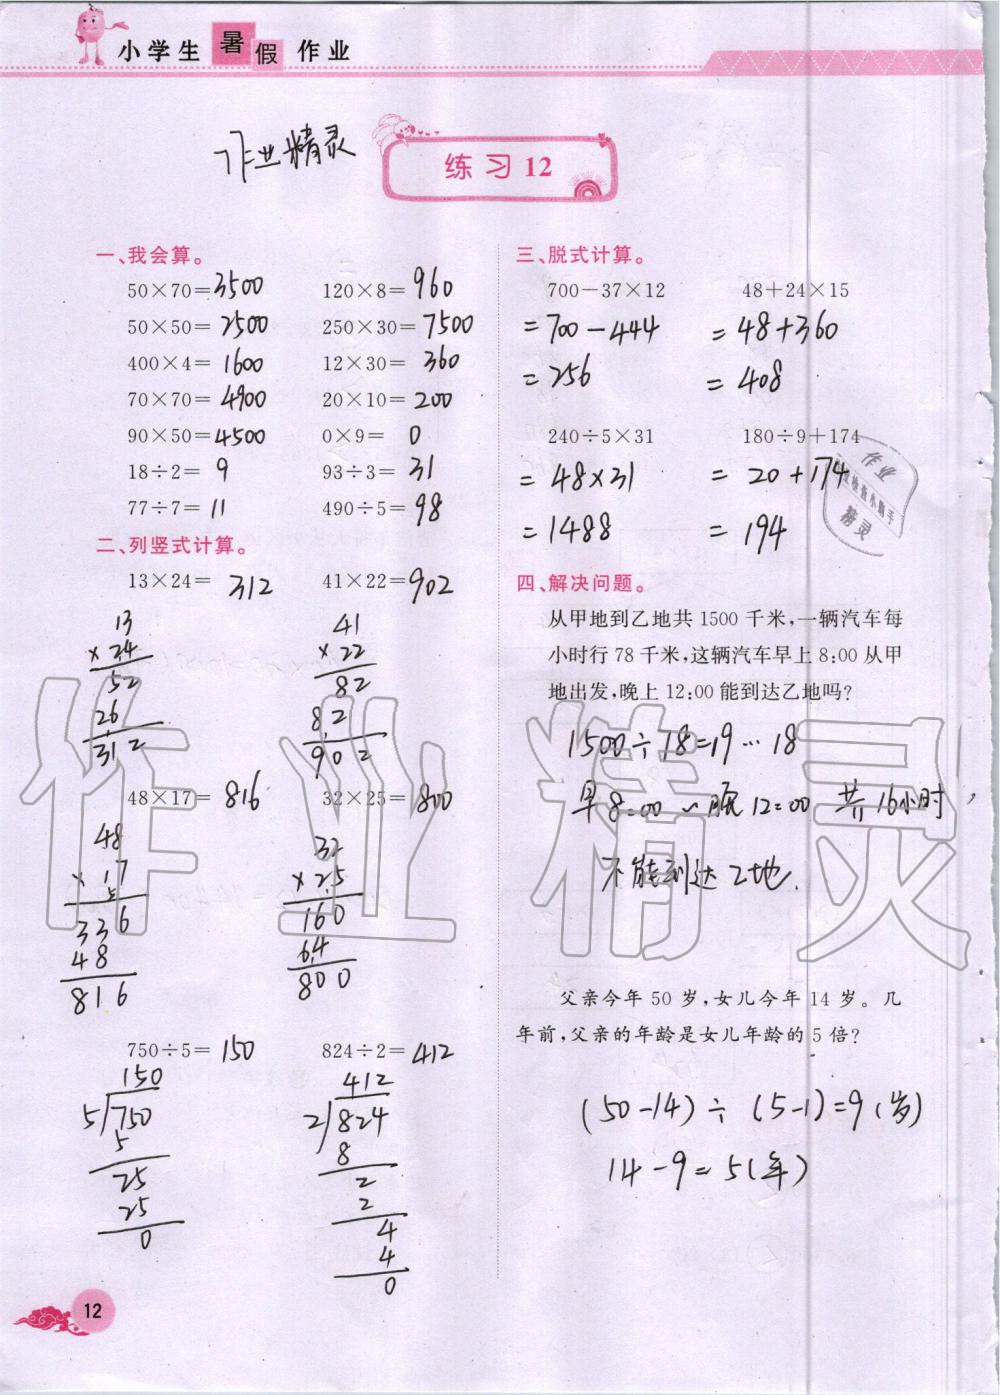 小学生暑假作业
作业精灵
练习12
一、我会算。
50×70=3500 120×8=960
50×50=2500 250×30=7500
400×4=1600 12×30=360
70×70=4900 20×10=200
90×50=4500 0×9=0
18÷2=9 93÷3=31
77÷7=11 490÷5=98
二、列竖式计算。
13×24=312 41×22=902
13 41
×24 ×22
52 82
26 82
312 902
48×17=816 32×25=800
48 32
×17 ×25
5
336 160
48 64
816 800
750÷5=150 824÷2=412
150 412
5/750 2/824
5 8
25 2
25 2
0 4
4
0
12
三、脱式计算。
700-37×12 48+24×15
=700-444 =48+360
=256 =408
240÷5×31 180÷9+174
=48×31 =20+174
=1488 =194
作业
检查小助手
精灵
四、解决问题。
从甲地到乙地共1500千米,一辆汽车每
小时行78千米,这辆汽车早上8:00从甲
地出发,晚上12:00能到达乙地吗?
1500÷78=19…18
早8:00~晚12:00 共16小时,
不能到达乙地.
父亲今年50岁,女儿今年14岁。几
年前,父亲的年龄是女儿年龄的5倍?
(50-14)÷(5-1)=9(岁)
14-9=5(年)
作业精灵